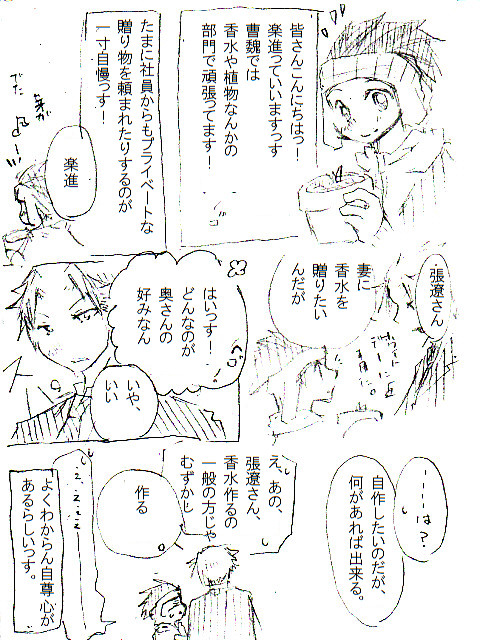 皆さんこんにちはっ！
楽進っていいますっす
曹魏では
香水や植物なんかの
部門で頑張ってます！
たまに社員からもプライベートな
贈り物を頼まれたりするのが
一寸自慢っす！
楽進
張遼さん
妻に
香水を
贈りたい
んだが
はいっす！
どんなのが
奥さんの
好みなん
いや、
いい
ーーーは？
自作したいのだが、
何があれば出来る。
え、あの、
張遼さん、
香水作るの
一般の方じゃ
むずかし
作る
よくわからん自尊心が
あるらしいっす。